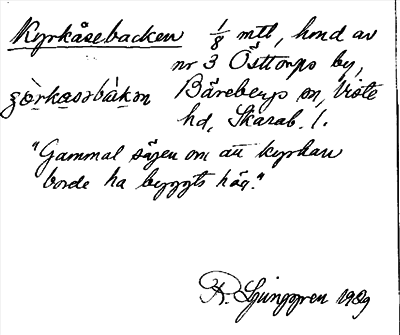 Kyrkåsebacken 1/8 mtl, hmd av
nr 3 Östtorps by,
Bäreberg sn, Viste
hd, Skarab. l.
"Gammal sägen om att kyrkan
borde ha byggts här."
R. Ljunggren 1929